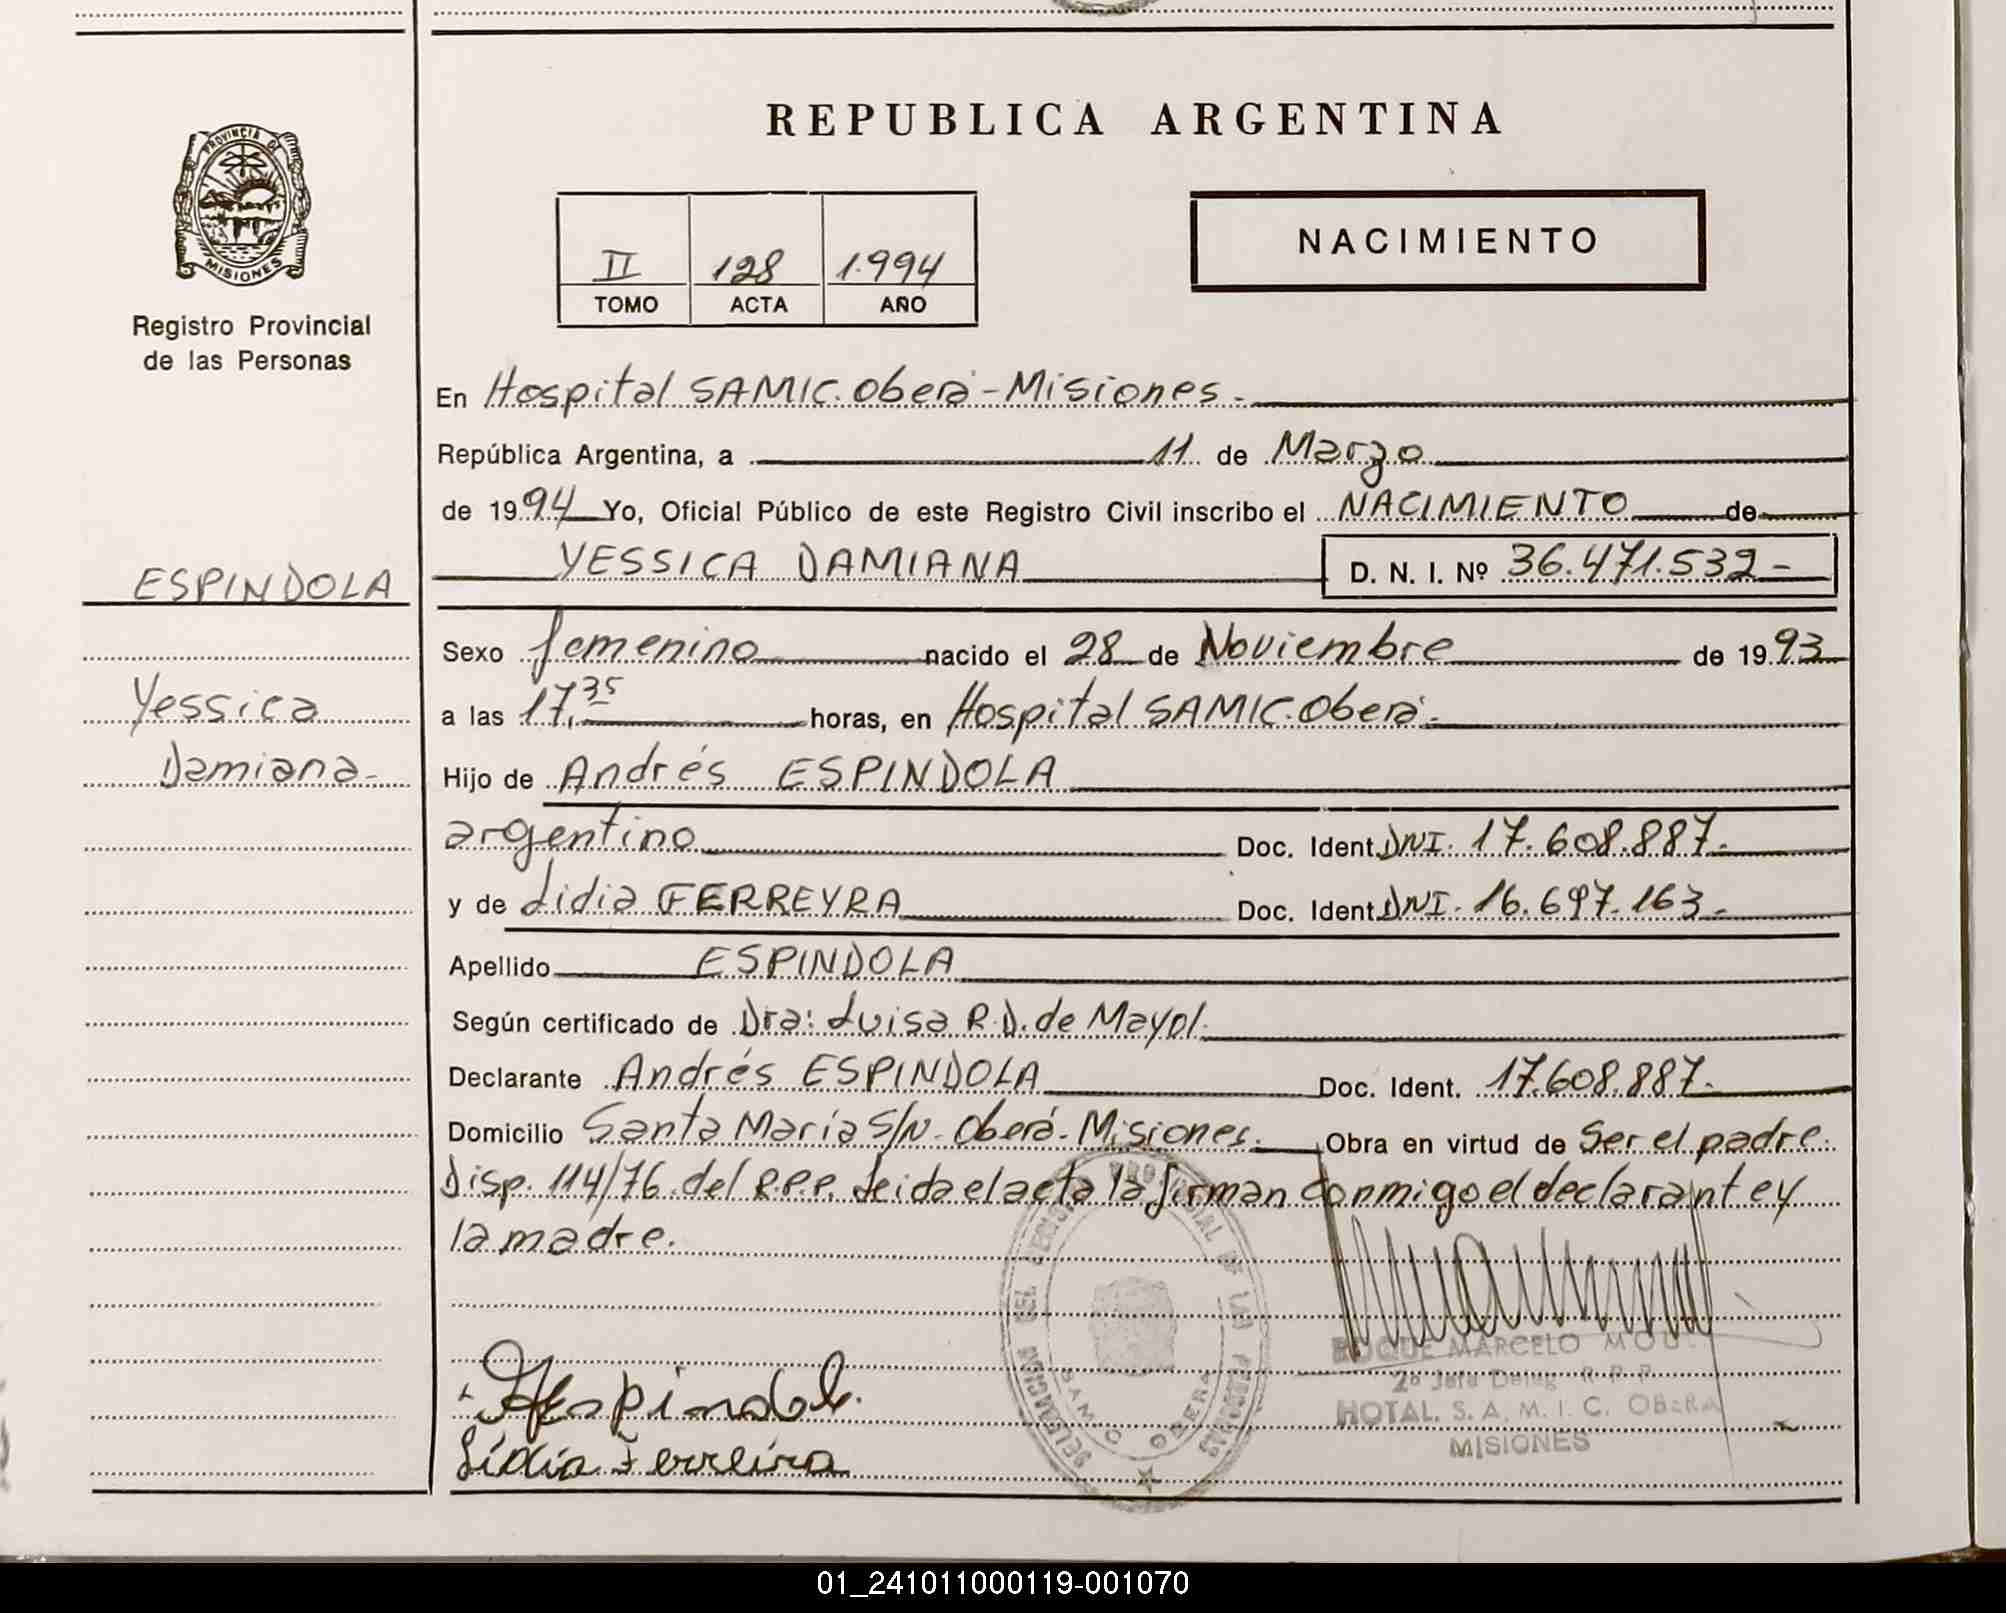 REPUBLICA ARGENTINA
PROVINCIA DE
MISIONES
Registro Provincial
de las Personas
II 128 1.994
TOMO ACTA AÑO
NACIMIENTO
En Hospital SAMIC. Oberá - Misiones.
República Argentina, a 11 de Marzo
de 1994 Yo, Oficial Público de este Registro Civil inscribo el NACIMIENTO de
ESPINDOLA
Yessica
Damiana-
YESSICA DAMIANA D. N. I. Nº 36.471.532-
Sexo femenino nacido el 28 de Noviembre de 1993
a las 17,35 horas, en Hospital SAMIC. Oberá.
Hijo de Andrés ESPINDOLA
argentino Doc. Ident. DNI. 17.608.887.
y de Lidia FERREYRA Doc. Ident. DNI. 16.697.163.
Apellido ESPINDOLA
Según certificado de Dra: Luisa R.D. de Mayol.
Declarante Andrés ESPINDOLA Doc. Ident. 17.608.887.
Domicilio Santa María S/N. Oberá. Misiones. Obra en virtud de Ser el padre.
Disp. 114/76 del R.P.P. Leida el acta la firman conmigo el declarante y
la madre.
DELEGACION DEL REGISTRO PROVINCIAL DE LAS PERSONAS
SAMIC OBERA
ROQUE MARCELO
2º Jefe Deleg. R. P. P.
HOTAL. S. A. M. I. C. OBERA
MISIONES
Espindola.
Lidia Ferreira
01_241011000119-001070